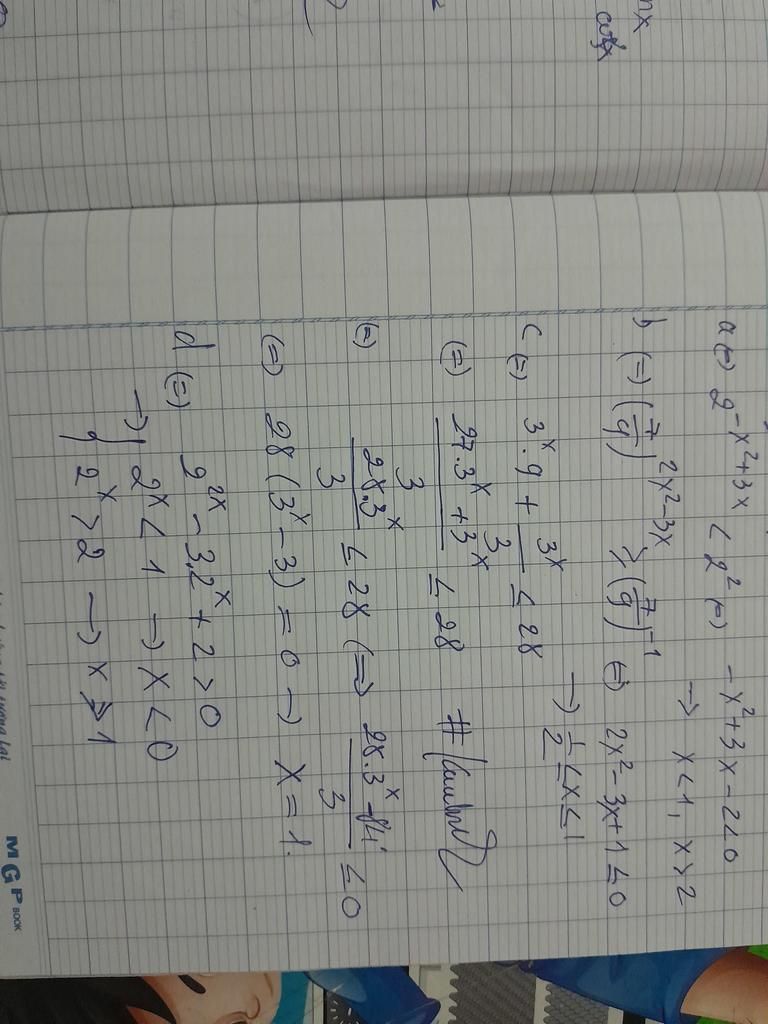 a (=) 2^{-x²+3x} < 2² (=) -x²+3x-2<0
→ x<1, x>2
b (=) (7/9)^{2x²-3x} ≥ (7/9)^{-1} (=) 2x²-3x+1≤0
→ 1/2 ≤ x ≤ 1
c (=) 3^x.9 + 3^x/3 ≤ 28
(=) (27.3^x+3^x)/3 ≤ 28
(=) 28.3^x/3 ≤ 28 (=) (28.3^x-84)/3 ≤ 0
(=) 28(3^x-3)=0 → x=1.
d (=) 2^{2x}-3.2^x+2>0
→ { 2^x<1 → x<0
2^x>2 → x>1
MGP BOOK